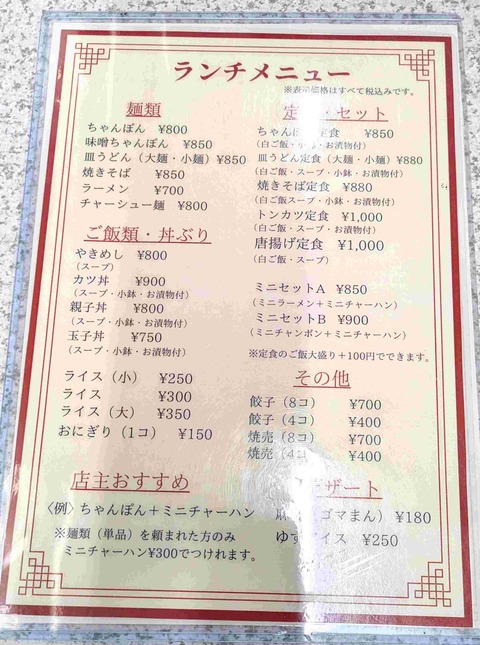 ランチメニュー
※表示価格はすべて税込みです。
麺類
ちゃんぽん ¥800
味噌ちゃんぽん ¥850
皿うどん（大麺・小麺）¥850
焼きそば ¥850
ラーメン ¥700
チャーシュー麺 ¥800
ご飯類・丼ぶり
やきめし ¥800
（スープ）
カツ丼 ¥900
（スープ・小鉢・お漬物付）
親子丼 ¥800
（スープ・小鉢・お漬物付）
玉子丼 ¥750
（スープ・小鉢・お漬物付）
ライス（小） ¥250
ライス ¥300
ライス（大） ¥350
おにぎり（1コ） ¥150
店主おすすめ
〈例〉ちゃんぽん＋ミニチャーハン
※麺類（単品）を頼まれた方のみ
ミニチャーハン¥300でつけれます。
定 ・セット
ちゃんぽん定食 ¥850
（白ご飯・小鉢・お漬物付）
皿うどん定食（大麺・小麺）¥880
（白ご飯・スープ・小鉢・お漬物付）
焼きそば定食 ¥880
（白ご飯・スープ・小鉢・お漬物付）
トンカツ定食 ¥1,000
（白ご飯・スープ・お漬物付）
唐揚げ定食 ¥1,000
（白ご飯・スープ）
ミニセットA ¥850
（ミニラーメン＋ミニチャーハン）
ミニセットB ¥900
（ミニチャンポン＋ミニチャーハン）
※定食のご飯大盛り＋100円でできます。
その他
餃子（8コ） ¥700
餃子（4コ） ¥400
焼売（8コ） ¥700
焼売（4コ ¥400
ザート
ゴマまん）¥180
ゆず イス ¥250